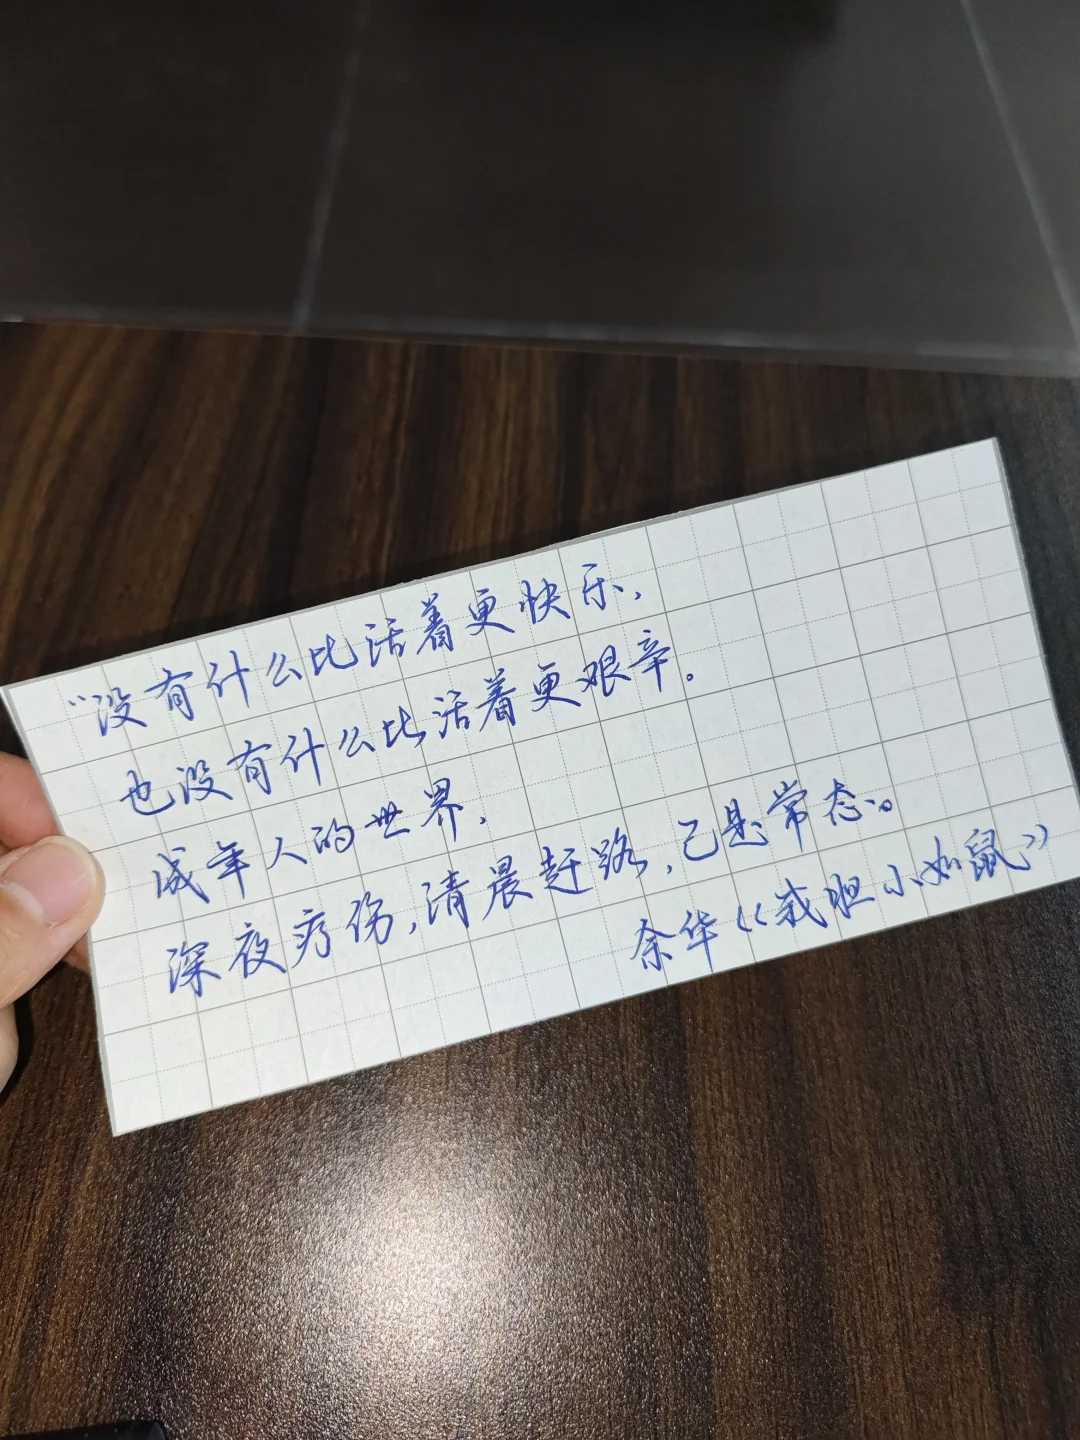 “没有什么比活着更快乐,
也没有什么比活着更艰辛。
成年人的世界,
深夜疗伤,清晨赶路,已是常态。
余华《我胆小如鼠》